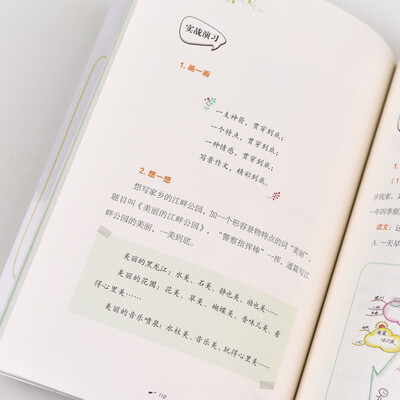 实战演习
1. 画一画
一支神箭，贯穿到底；
一个特点，贯穿到底；
一种情感，贯穿到底；
写景作文，精彩到底。
2. 想一想
想写家乡的江畔公园，加一个形容景物特点的词“美丽”，
题目叫《美丽的江畔公园》，“警察指挥棒”一挥，通篇写江
畔公园的美丽，一美到底。
美丽的黑龙江：水美、石美、静也美、动也美……
美丽的花圃：花美、草美、蝴蝶美、香味儿美、看
得心里美……
美丽的音乐喷泉：水柱美、音乐美、玩得心里美……
110
1.
（1
序我素，
一年四季顺
范文：
人一天早